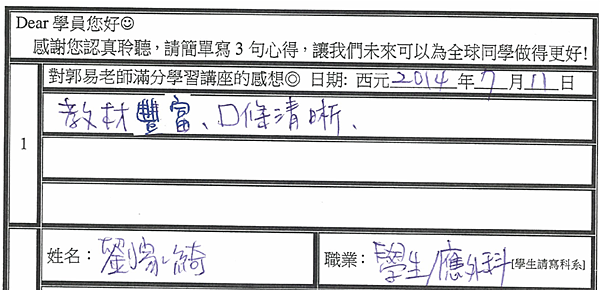 Dear 學員您好☺
感謝您認真聆聽，請簡單寫 3 句心得，讓我們未來可以為全球同學做得更好!
對郭易老師滿分學習講座的感想◎ 日期: 西元 2014 年 7 月 11 日
1
教材豐富、口條清晰、
姓名：劉家綺
職業：學生/應外科 [學生請寫科系]